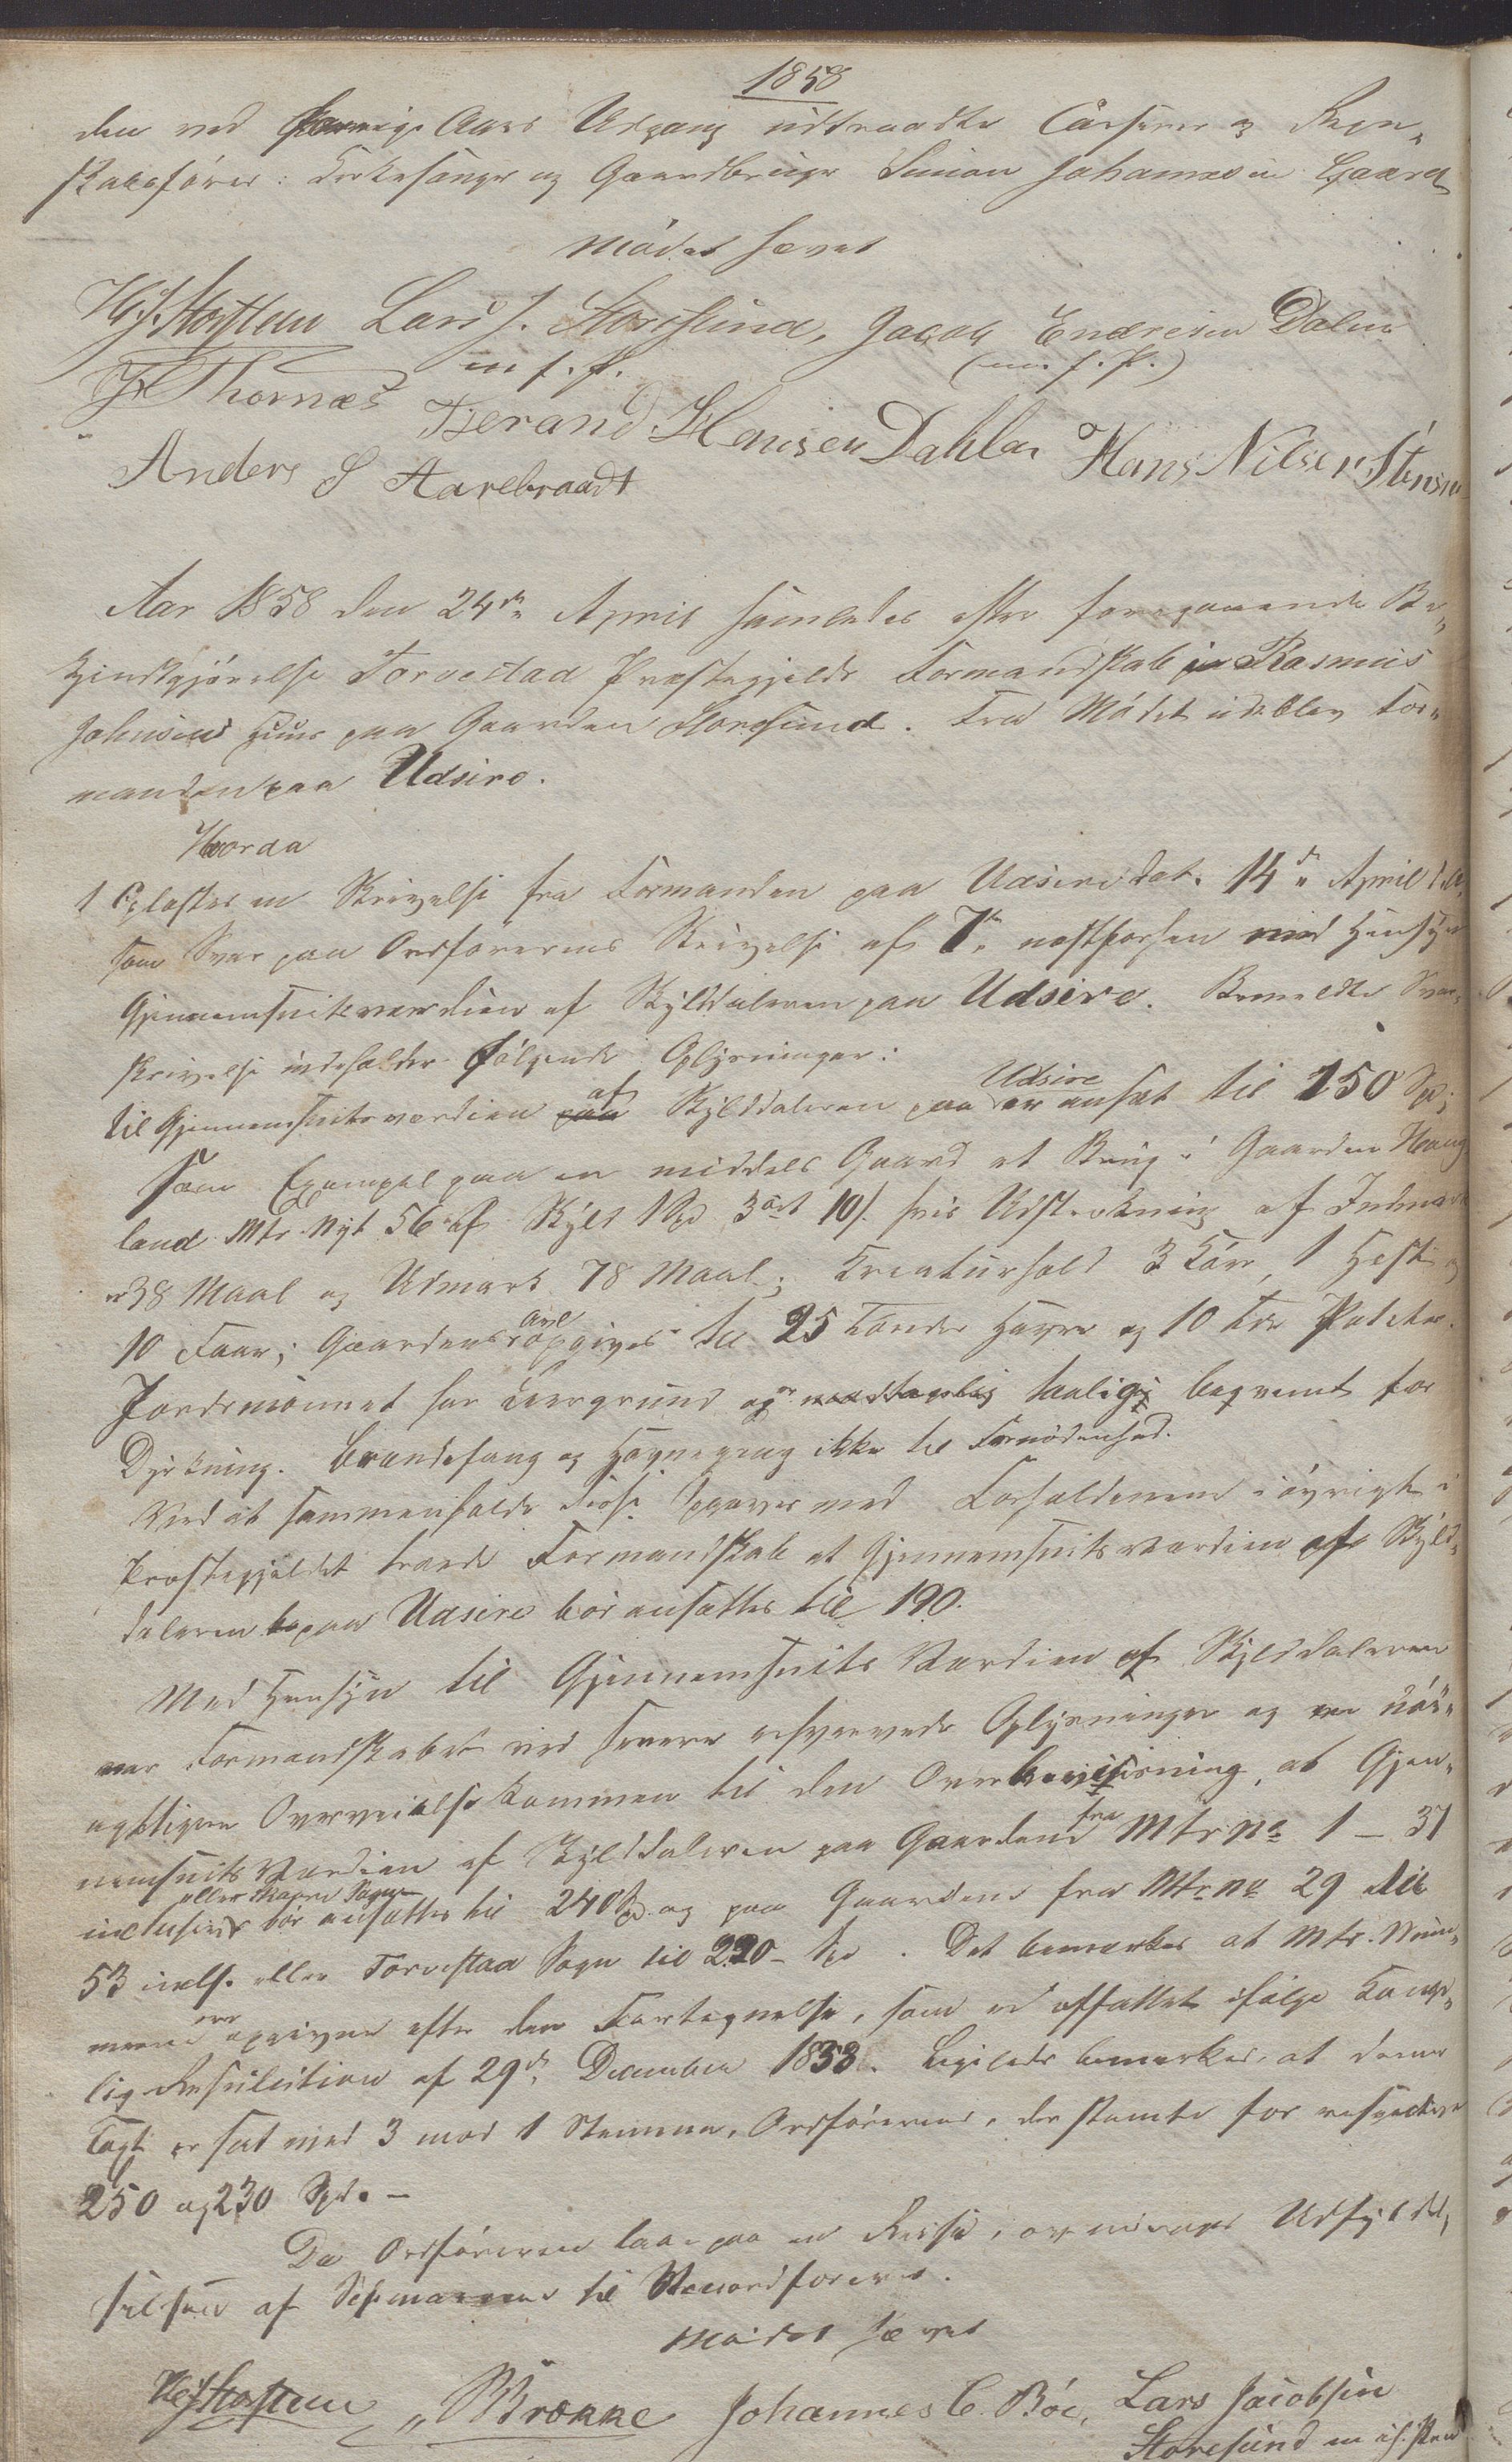 1858
den ved forrige Aars Udgang udtraadte Casserer og Regn-
skabsfører: Kirkesanger og Gaardbruger Simon Johannesen Gaard
Mødet hævet
H. J. Horsten Lars J. Storesund, Jacob Endresen Dalen
m. f. P. (m. f. P.)
Thornæs
Tjerand Hansen Dahlen Hans Nilsen Stensnes
Anders S Aarebraadt
Aar 1858 den 24de April samledes efter foregaaende Be-
kjendtgjørelse Torvestad Præstegjelds Formandskab i Rasmus
Johnsens Huus paa Gaarden Storesund. Fra Mødet udeblev For-
manden paa Udsire.
Hvorda
1 Oplæstes en Skrivelse fra Formanden paa Udsire dat. 14de April d. A.
som Svar paa Ordførerens Skrivelse af 7de næstforhen med Hensyn
Gjennemsnitsværdien af Skylddaleren paa Udsire. Bemeldte Svar-
skrivelse indeholder følgende Oplysninger:
til Gjennemsnitsværdien paa af Skylddaleren paa Udsire er ansat til 150 Spd;
Som Exempel paa en middels Gaard et Brug i Gaarden Houg
land Mtr Nyt 56 af Skyld 1 Spd 3 ort 10 s. hvis Udstrækning af Indmark
er 38 Maal og Udmark 78 Maal; Kreaturhold 3 Kør, 1 Hest og
10 Faar; Gaardens Avl opgives til 25 Tønder Havre og 10 Tdr Poteter.
Jordsmonnet har Leergrund og er taalig beqvemt for
Dyrkning. Brændefang og Havnegang ikke til Fornødenhed.
Ved at sammenholde disse Opgaver med Forholdene iøvrigt i
Præstegjeldet troede Formandskab at Gjennemsnitsværdien af Skyld-
daleren paa Udsire bør ansættes til 190.
Med Hensyn til Gjennemsnits Værdien af Skylddaleren
var Formandskabet ved senere erhvervede Oplysninger og en nøi-
agtigere Overveielse kommen til den Overbeviisning, at Gjen-
nemsnits Værdien af Skylddaleren paa Gaardene fra Mtr No 1 - 31
inclusive eller Skaare Sogn bør ansættes til 240 Spd. og paa Gaardene fra Mtr No 29 til
53 incls. eller Torvestad Sogn til 220 - Spd. Det bemærkes at Mtr. Num-
merne ere opgivne efter den Fortegnelse, som er affattet ifølge Konge-
lig Resolution af 29de December 1838. Ligeledes bemærkes, at denne
Taxt er sat med 3 mod 1 Stemme, Ordførerens, der stemte for respective
250 og 230 Spd. -
Da Ordføreren laa paa en Reise, overdrages Udfyldel-
sen af Schemaerne til Viceordføreren.
Mødet hævet
H. J. Horsten Brække Johannes C. Bøe, Lars Jacobsen
Storesund